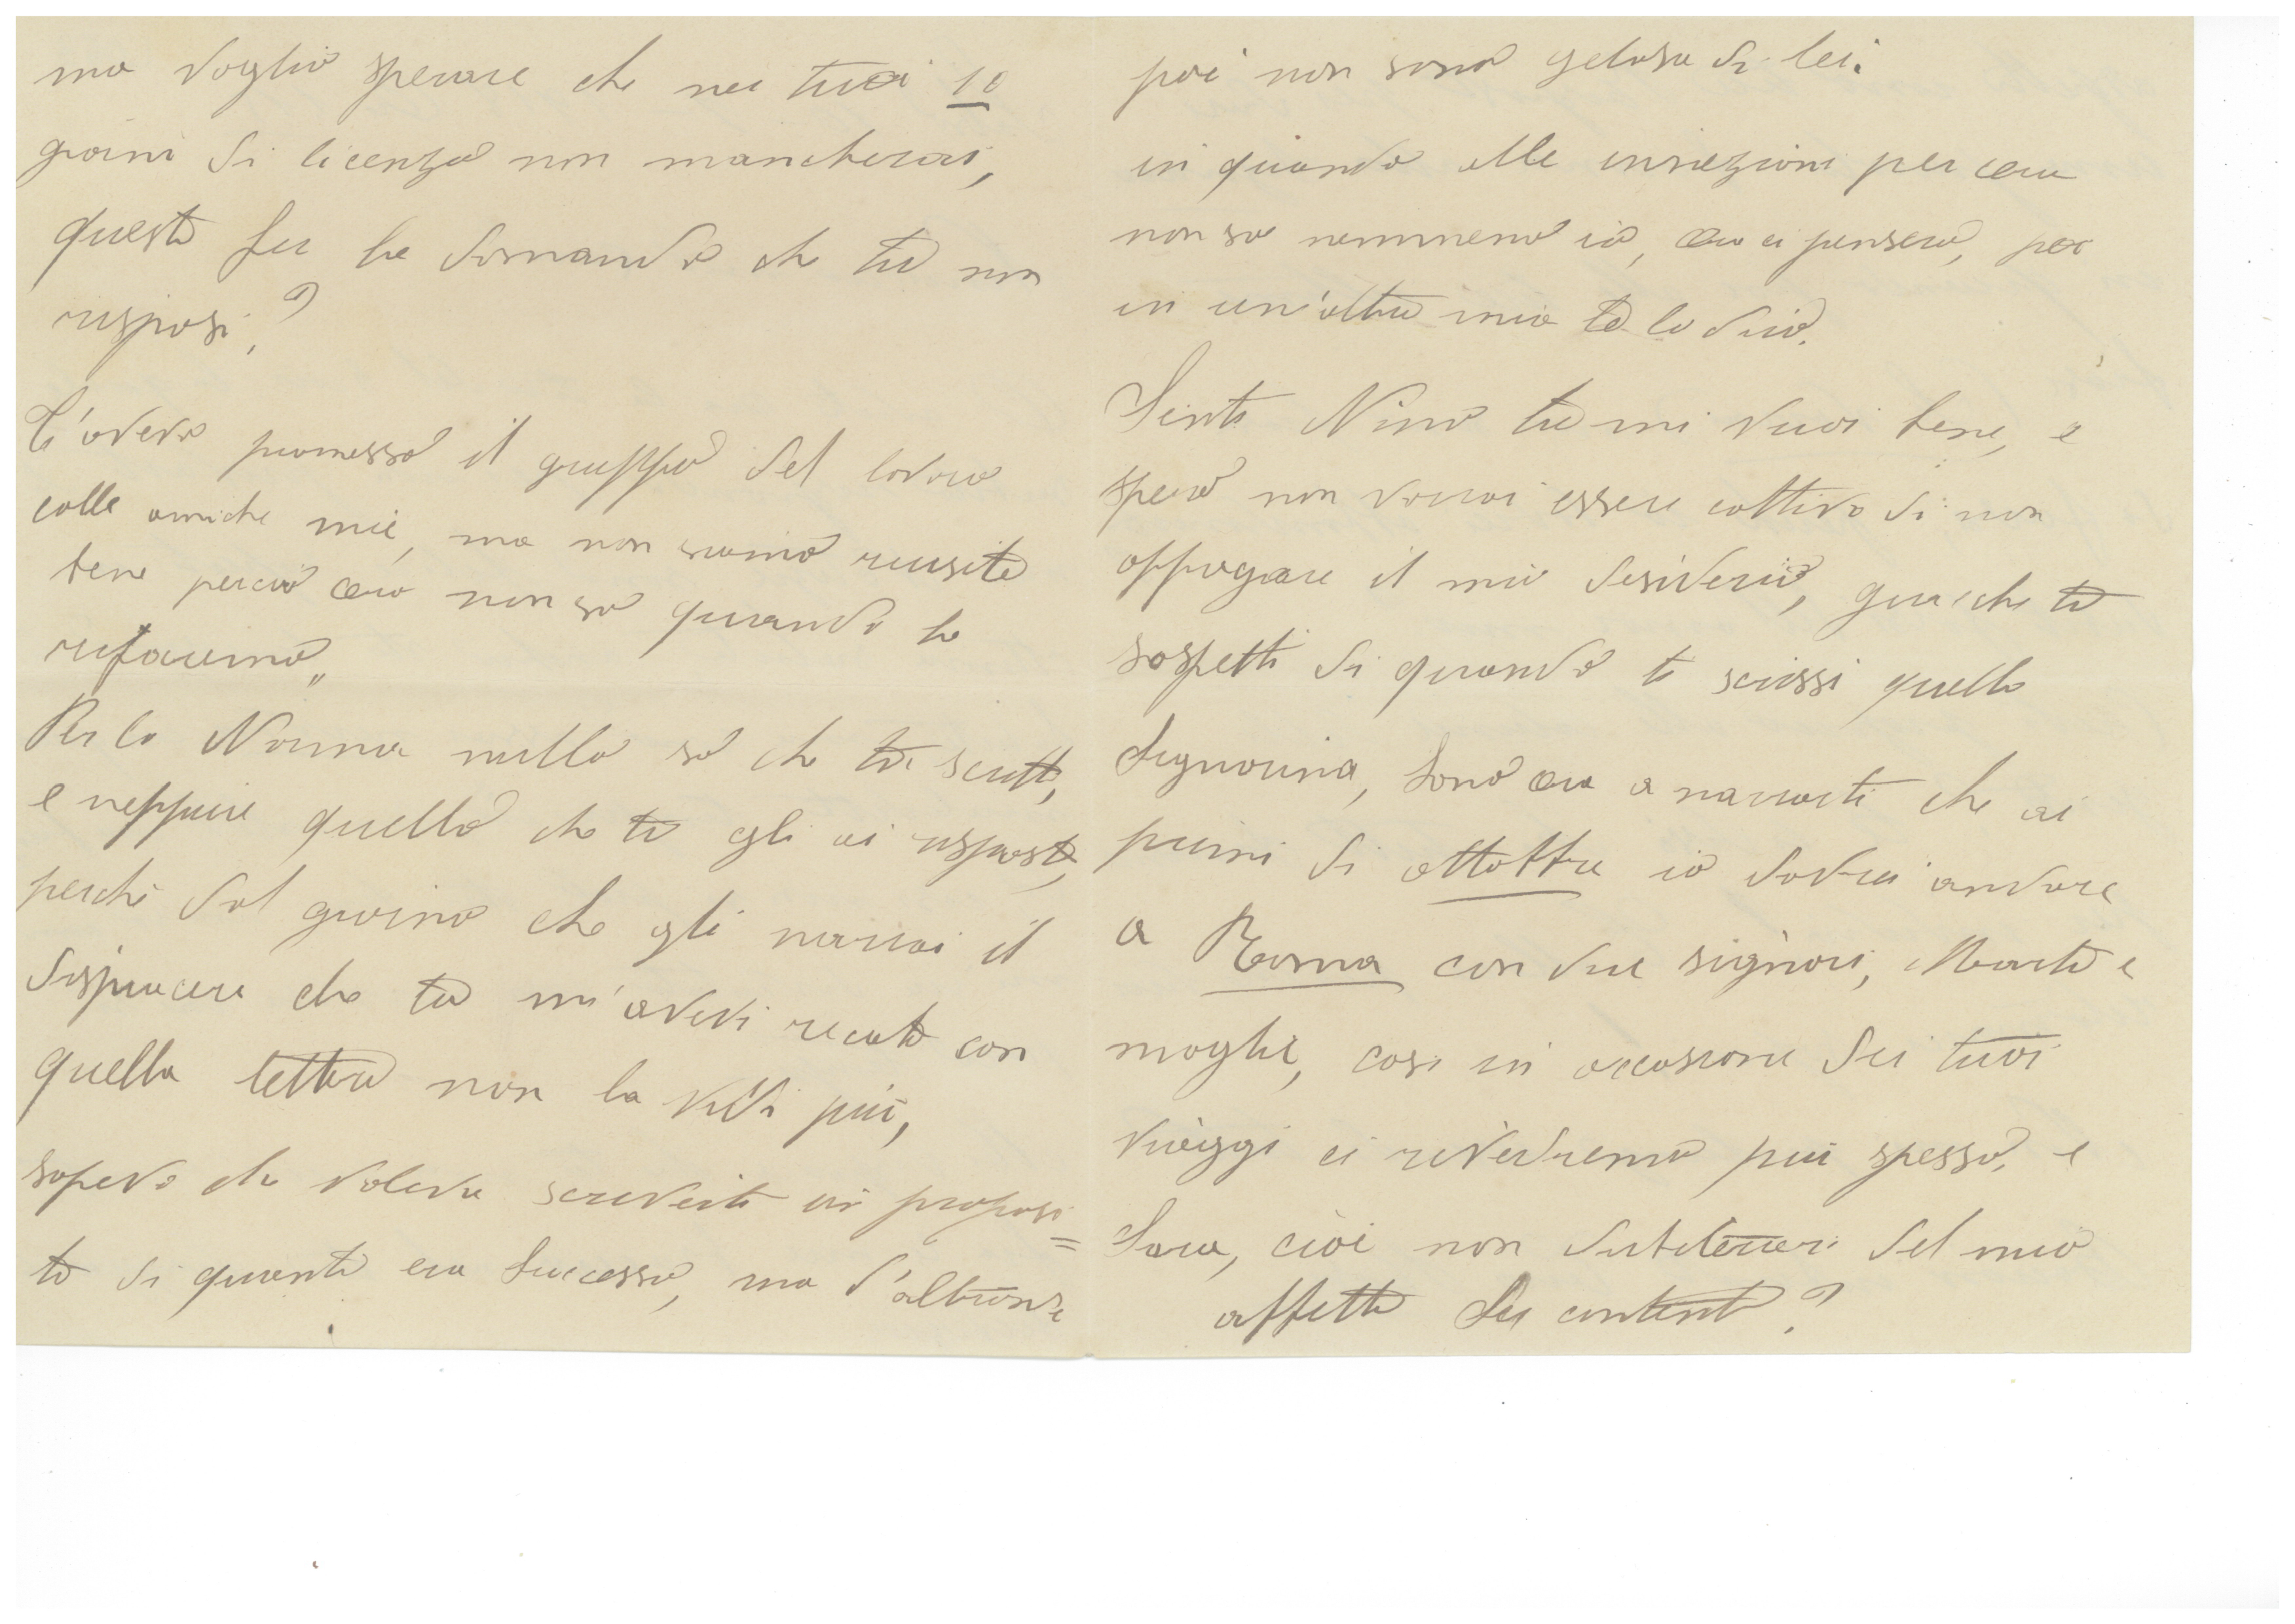 ma voglio sperare che nei tuoi 10
giorni di licenza non mancherai,
questo fu la domanda che tu non
risposi?
T'avevo promesso il gruppo del lavoro
colle amiche mie, ma non siamo riuscite
bene perciò ora non so quando lo
rifaremo,,
Per la Norma nulla so che ti scritto,
e neppure quello che tu gli ai risposto,
perchè dal giorno che gli narrai il
dispiacere che tu m'avevi recato con
quella lettera non la vidi più,
sapevo che voleva scriverti in proposi=
to di quanto era successo, ma d'altronde
poi non sono gelosa di lei.
in quando alle iniezioni per ora
non so nemmeno io, ora ci penserò, poi
in un'altra mia te lo dirò.
Senti Nino tu mi vuoi bene, e
spero non vorrai essere cattivo di non
appagare il mio desiderio, giacchè tu
sospetti di quando ti scrissi quella
Signorina, sono ora a narrarti che ai
primi di ottobre io dovrei andare
a Roma con due signori, Marito e
moglie, così in occasione dei tuoi
viaggi ci rivedremo più spesso, e
Sara, cioè non dubiterai del mio
affetto Sei contento?